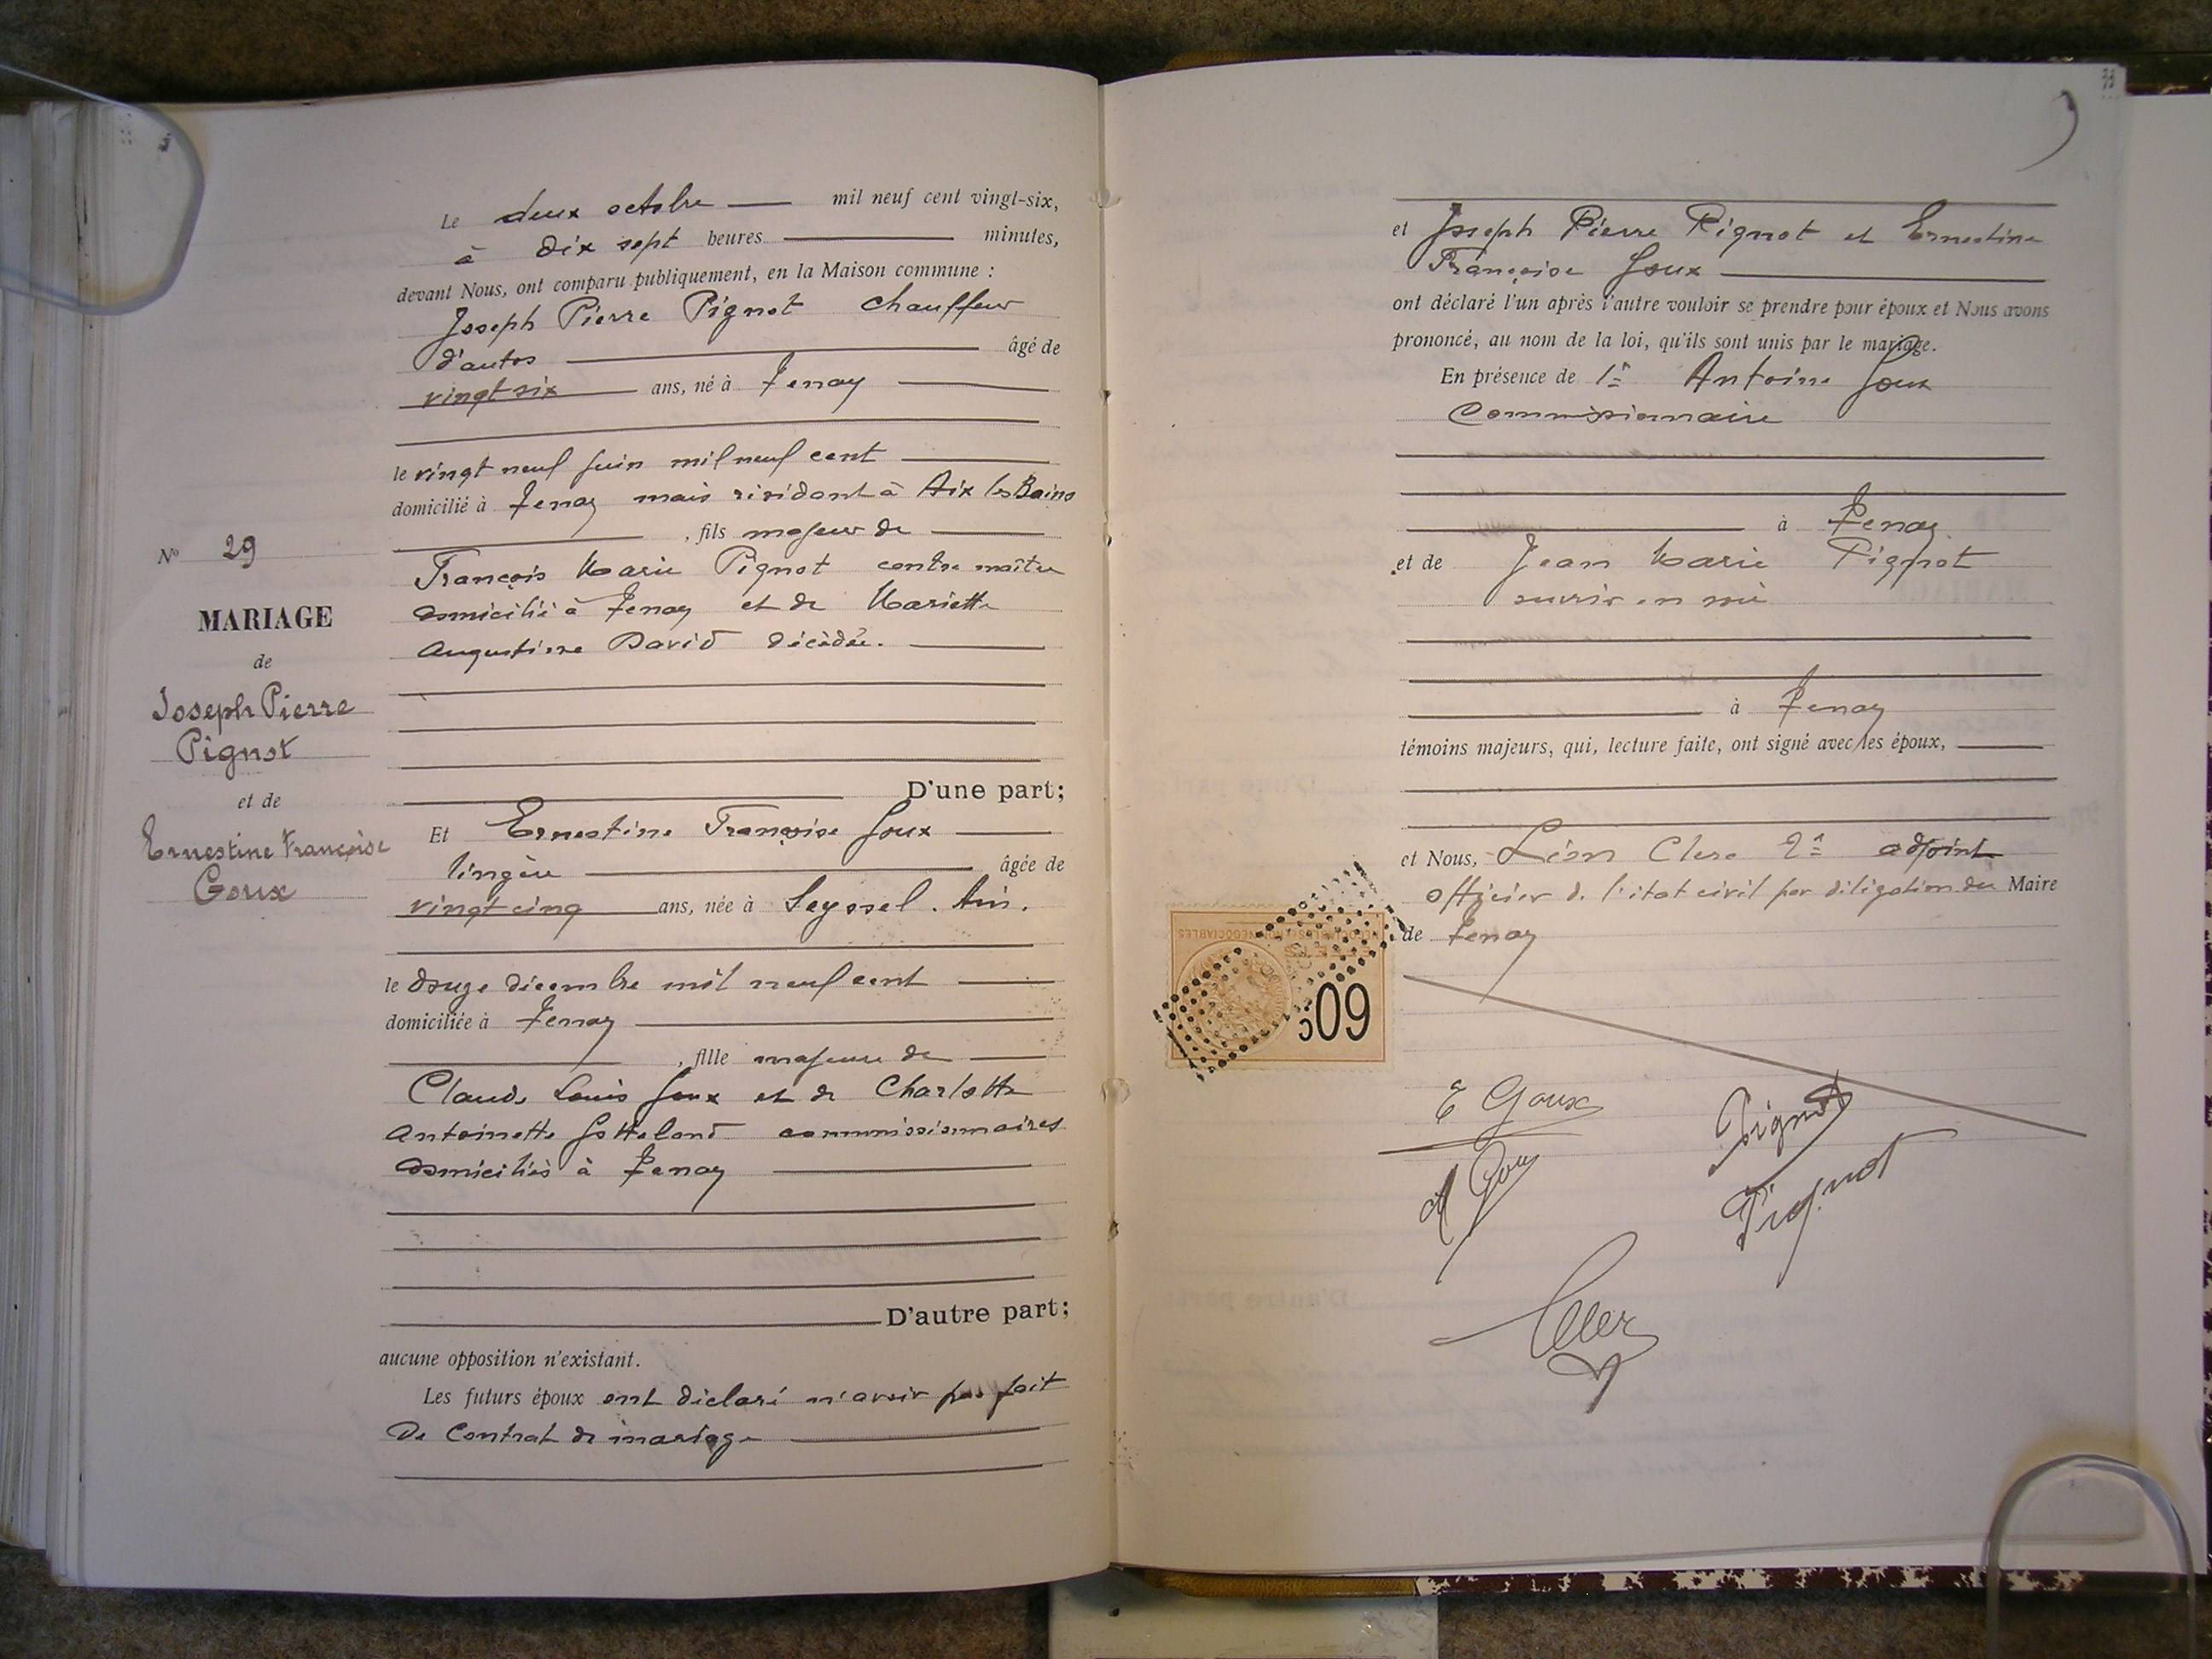 Le deux octobre mil neuf cent vingt-six,
à dix sept heures minutes,
devant Nous, ont comparu publiquement, en la Maison commune :
Joseph Pierre Pignot Chauffeur
d'autos âgé de
vingt six ans, né à Tenay
le vingt neuf juin mil neuf cent
domicilié à Tenay mais résidant à Aix les Bains
, fils majeur de
François Marie Pignot contre maître
domicilié à Tenay et de Mariette
Augustine David décédée.
D'une part;
N° 29
MARIAGE
de
Joseph Pierre
Pignot
et de
Ernestine Françoise
Goux
Et Ernestine Françoise Goux
lingère âgée de
vingt cinq ans, née à Seyssel. Ain.
le douze décembre mil neuf cent
domiciliée à Tenay
, fille majeure de
Claude Louis Goux et de Charlotte
Antoinette Gotteland commissionnaires
domiciliés à Tenay
D'autre part;
aucune opposition n'existant.
Les futurs époux ont déclaré n'avoir pas fait
de contrat de mariage
et Joseph Pierre Pignot et Ernestine
Françoise Goux
ont déclaré l'un après l'autre vouloir se prendre pour époux et Nous avons
prononcé, au nom de la loi, qu'ils sont unis par le mariage.
En présence de 1r Antoine Goux
Commissionnaire
à Tenay
et de Jean Marie Pignot
à Tenay
témoins majeurs, qui, lecture faite, ont signé avec les époux,
et Nous, Léon Clerc 2e adjoint
officier de l'état civil par délégation du Maire
de Tenay
60c
E Goux
Pignot
A Goux
Pignot
Clerc